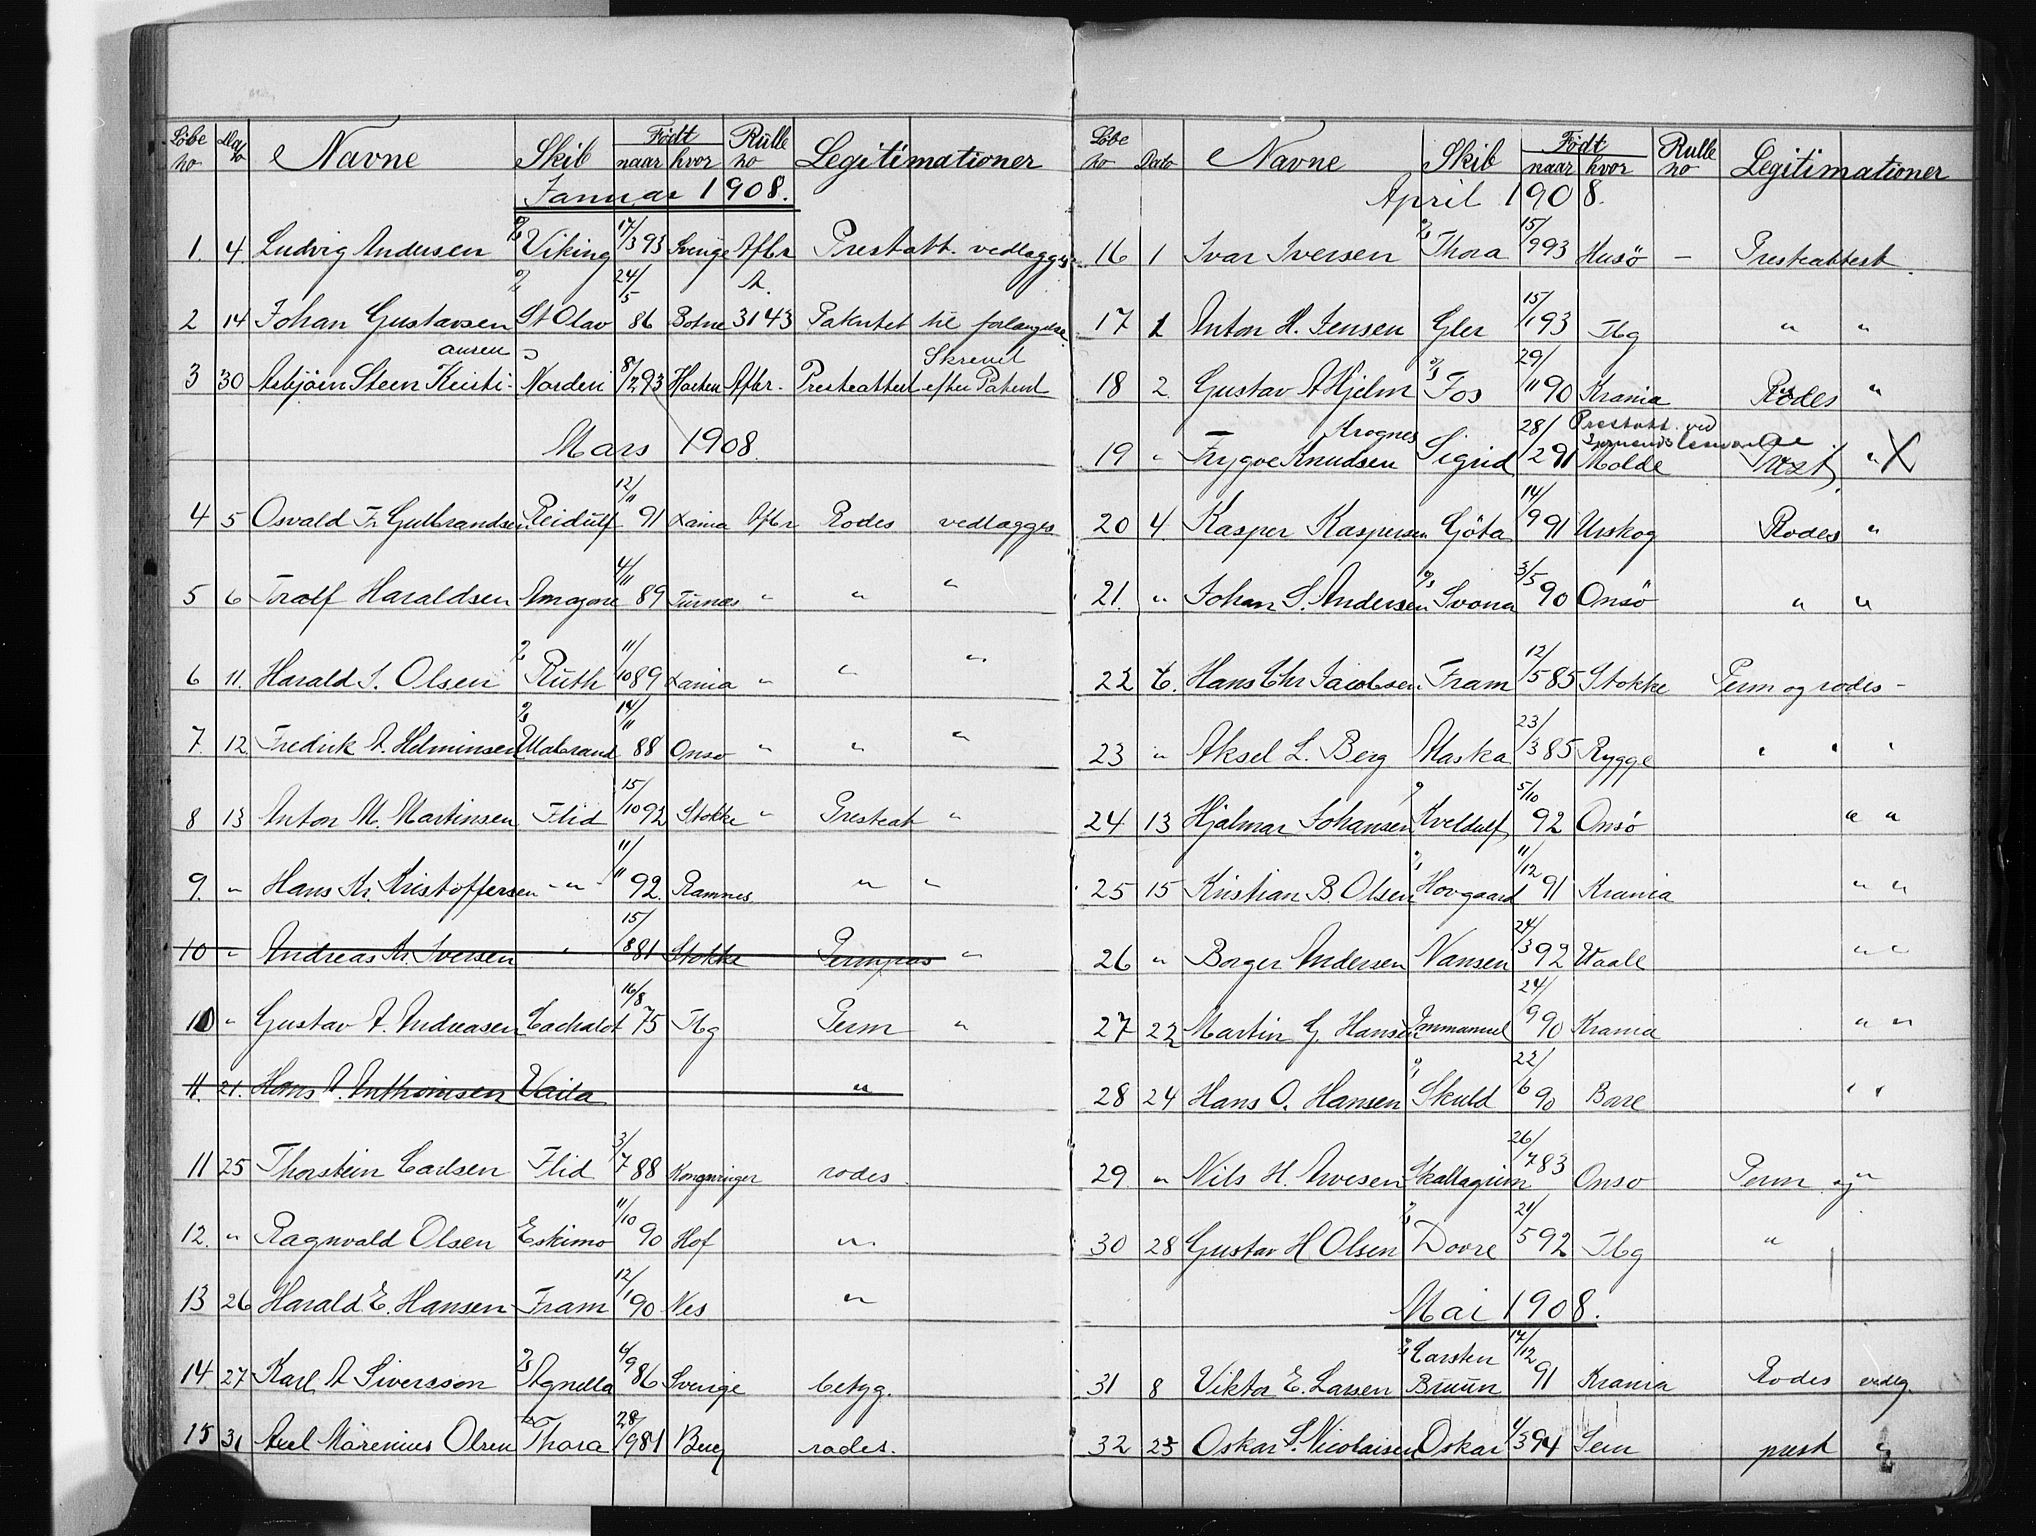 Løbe no Dato Navne Skib Født naar hvor Rulle no Legitimationer
Januar 1908.
1. 4. Ludvig Andersen Viking 17/3 93 Sverige Afbr Prestatt. vedlægges
2 14 Johan Gustavsen St Olav 24/5 86 Botne A. 3143 Patentet til forlængelse
3 30 Asbjørn Steen Kristiansen Norden 8/12 93 Horten Afbr. Presteattest Skrevet efter Patent
Mars 1908
4 5 Osvald Fr Gulbrandsen Reidulf 12/11 91 Lania Afbr Rodes vedlægges
5 6 Trolf Haraldsen Amazone 4/11 89 " " "
6 11. Harald S. Olsen Ruth 11/10 89 Lania " " "
7. 12. Fredrik A. Helminsen Ulabrand 14/11 88 Onsø " " "
8 13 Anton M. Martinsen Flid 15/10 92 Stokke " Presteat "
9. " Hans Kr. Kristoffersen " 11/11 92. Ramnes. " "
10 " Andreas Kr. Iversen " 15/8 81 Stokke Permpas "
10 " Gustav A. Andreasen Cachalot 16/8 75 Tbg Perm "
11. 21. Hans A. Anthonisen Vaila "
11 25 Thorstein Carlsen Flid 3/7 88 Kongsvinger rodes.
12. " Ragnvald Olsen Eskimo 11/10 90 Hof "
13 26 Harald E. Hansen Fram 12/1 90 Nes "
14. 27 Karl A Siversson Agnella 6/9 86 Sverige betyg.
15 31 Axel Marenius Olsen Thora 28/9 81 Berg rodes.
Løbe no Dato Navne Skib Født naar hvor Rulle no Legitimationer
April 1908.
16 1 Ivar Iversen Thora 15/9 93 Husö – Presteattest.
17 1 Anton H. Jensen Gler 15/1 93 Tbg " "
18 2 Gustav A Hjelm Fos 29/11 90 Krania Rodes "
19 " Trygve Knudsen Krognes Sigrid 28/2 91 Molde Prestatt. ved " X
20 4. Kasper Kaspersen Göta 14/9 91 Urskog Rodes "
21. " Johan S. Andersen Svona 3/5 90 Onsö " "
22 6. Hans Chr Jacobsen Fram 12/5 85 Stokke Perm og rodes –
23 " Aksel L. Berg Alaska 23/3 85 Rygge " " "
24 13 Hjalmar Johansen Kveldulf 5/10 92 Onsø " "
25 15 Kristian B. Olsen Hovgaard 11/12 91 Krania " "
26 " Borger Andersen Nansen 24/3 92 Vaale " "
27 22 Martin G. Hansen Immanuel 24/9 90 Krania " "
28 24 Hans O. Hansen Skuld 22/6 90 Bare " "
29 " Nils H. Arvesen Skallagrim 26/7 83 Onsø Perm og "
30 28 Gustav H Olsen Dovre 21/5 92 Tbg "
Mai 1908.
31 8 Viktor E. Larsen Carsten Bruun 17/12 91 Krania Rodes vedlg.
32 25 Oskar S. Nicolaisen Oskar 4/3 94 Sem prest "